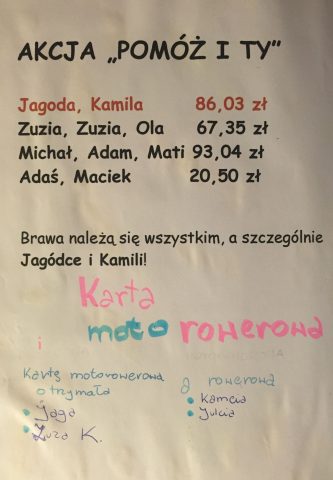 AKCJA „POMÓŻ I TY”
Jagoda, Kamila 86,03 zł
Zuzia, Zuzia, Ola 67,35 zł
Michał, Adam, Mati 93,04 zł
Adaś, Maciek 20,50 zł
Brawa należą się wszystkim, a szczególnie
Jagódce i Kamili!
Karta
i motorowerowa
Kartę motorowerowa
otrzymała
• Jaga
• Zuza K.
a rowerowa
• Kamcia
• Julcia